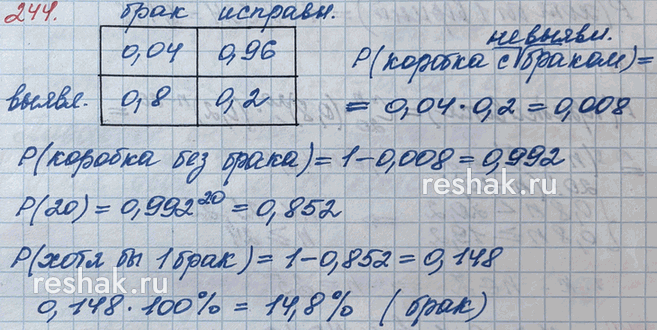 244. брак исправн.
0,04 0,96
выявл. 0,8 0,2
невыявл.
P(коробка с браком)=
= 0,04·0,2=0,008
P(коробка без брака)=1-0,008=0,992
reshak.ru
P(20)=0,992²⁰=0,852
reshak.ru
P(хотя бы 1 брак)=1-0,852=0,148
0,148·100%=14,8% (брак)